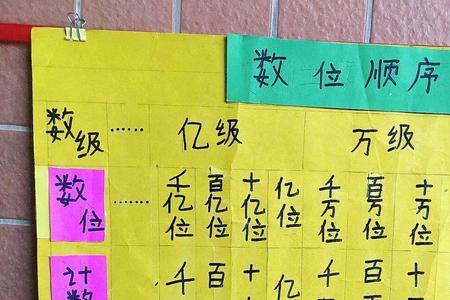 数位顺序
数级 …… 亿级 万级
数位 …… 千亿位 百亿位 十亿位 亿位 千万位 百万位 十万位
计数 千 百 十 亿 千 百 十